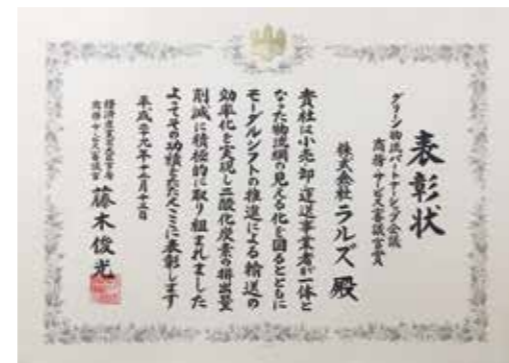 表彰状
グリーン物流パートナーシップ会議
商務・サービス審議官賞
株式会社ラルズ 殿
貴社は小売・卸・運送事業者が一体と
なった物流網の見える化を図るとともに
モーダルシフトの推進による輸送の
効率化を実現し二酸化炭素の排出量
削減に積極的に取り組まれました
よってその功績をたたえここに表彰します
平成二十九年十二月十二日
経済産業省大臣官房
商務・サービス審議官 藤木俊光